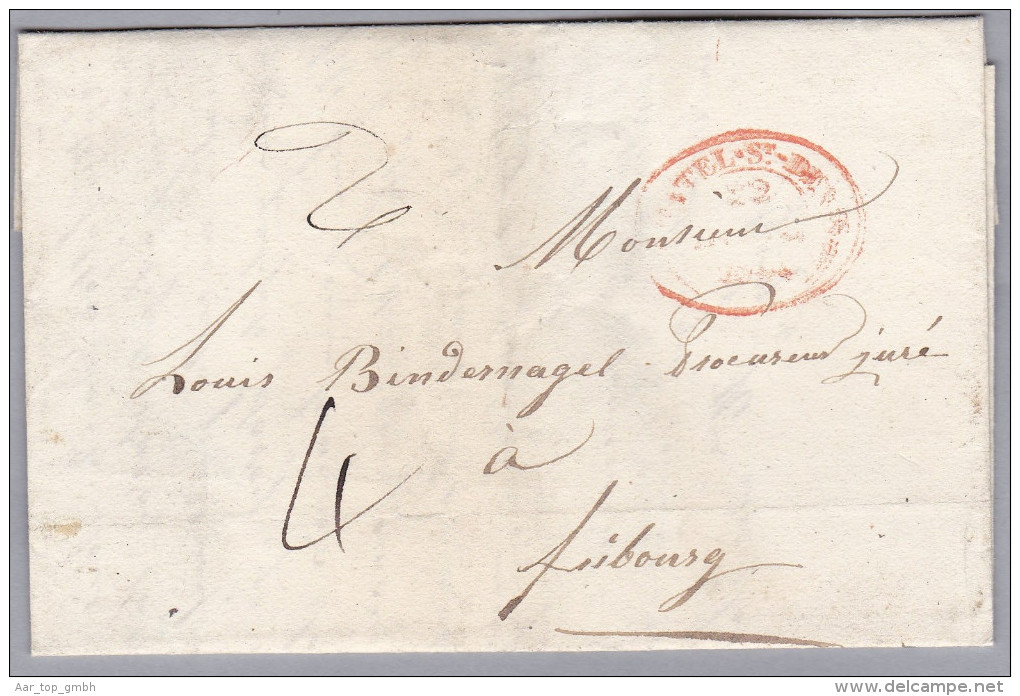 2
TEL·ST·DE
22
Monsieur
Louis Bindernagel Procureur juré
4
à
fribourg
Aar_top_gmbh
www.delcampe.net